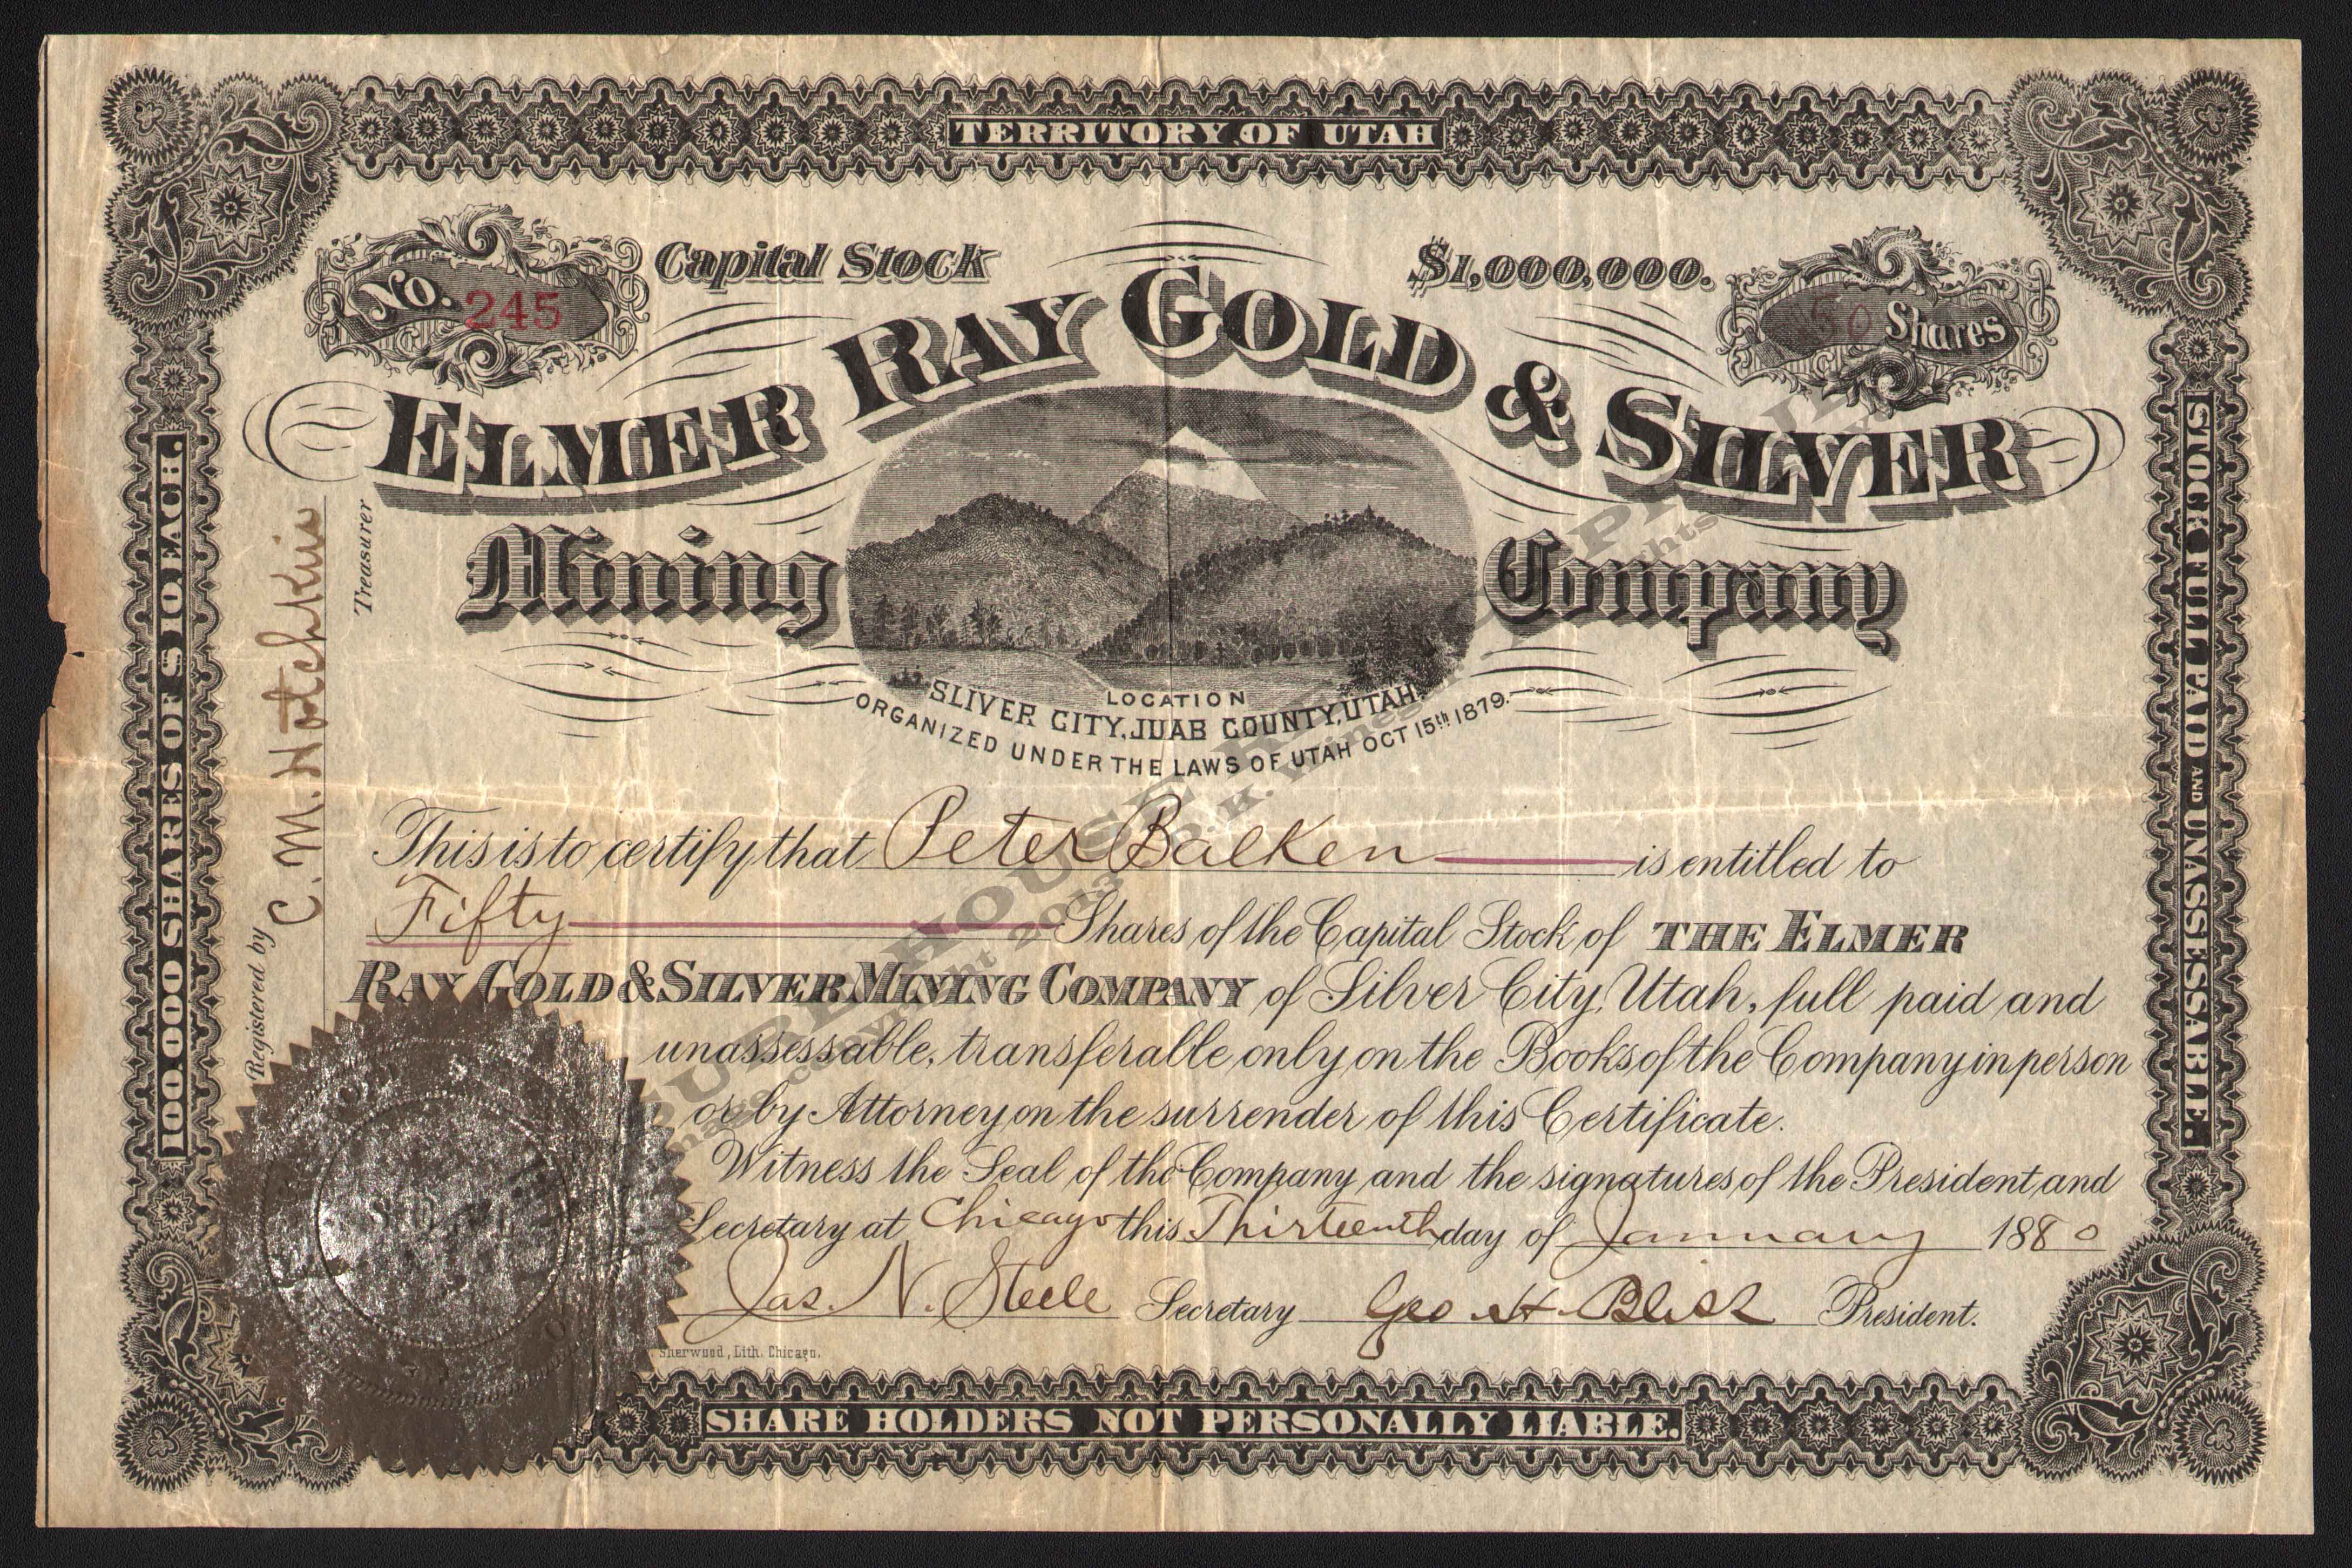 TERRITORY OF UTAH
No. 245
Capital Stock
$1,000,000.
50 Shares
ELMER RAY GOLD & SILVER
Mining Company
LOCATION
SLIVER CITY, JUAB COUNTY, UTAH
ORGANIZED UNDER THE LAWS OF UTAH OCT 15th 1879.
100,000 SHARES OF $10. EACH.
STOCK FULL PAID AND UNASSESSABLE.
Registered by C. M. Hotchkiss
Treasurer
This is to certify that Peter Balken is entitled to
Fifty Shares of the Capital Stock of THE ELMER
RAY GOLD & SILVER MINING COMPANY of Silver City, Utah, full paid and
unassessable, transferable only on the Books of the Company in person
or by Attorney on the surrender of this Certificate.
Witness the Seal of the Company and the signatures of the President and
Secretary at Chicago this Thirteenth day of January 1880
Jas. N. Steele Secretary Geo. H. Bliss President.
Sherwood, Lith. Chicago.
SHARE HOLDERS NOT PERSONALLY LIABLE.